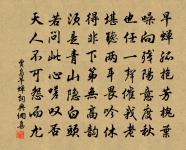 早蟬孤抱芳槐葉
噪向殘陽意度秋
也任一聲催我老
堪聽兩耳畏吟休
得非下第無高韻
須是青山隱白頭
若問此心嗟歎否
天人不可怨而尤